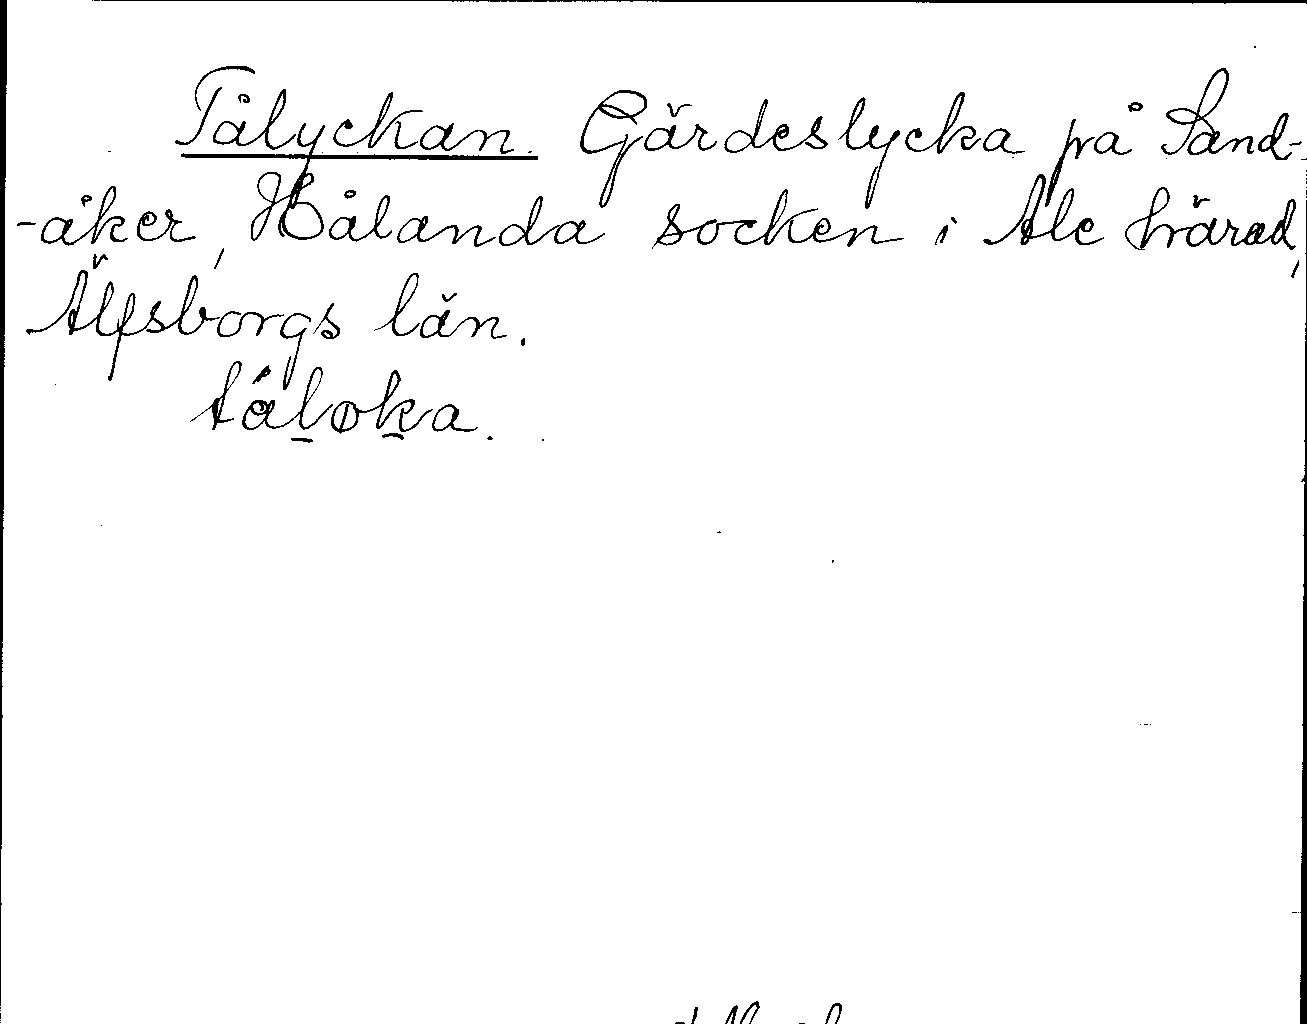 Tålyckan. Gärdeslycka på Sand-
-åker, Hålanda socken i Ale härad,
Älfsborgs län.
tåløka.